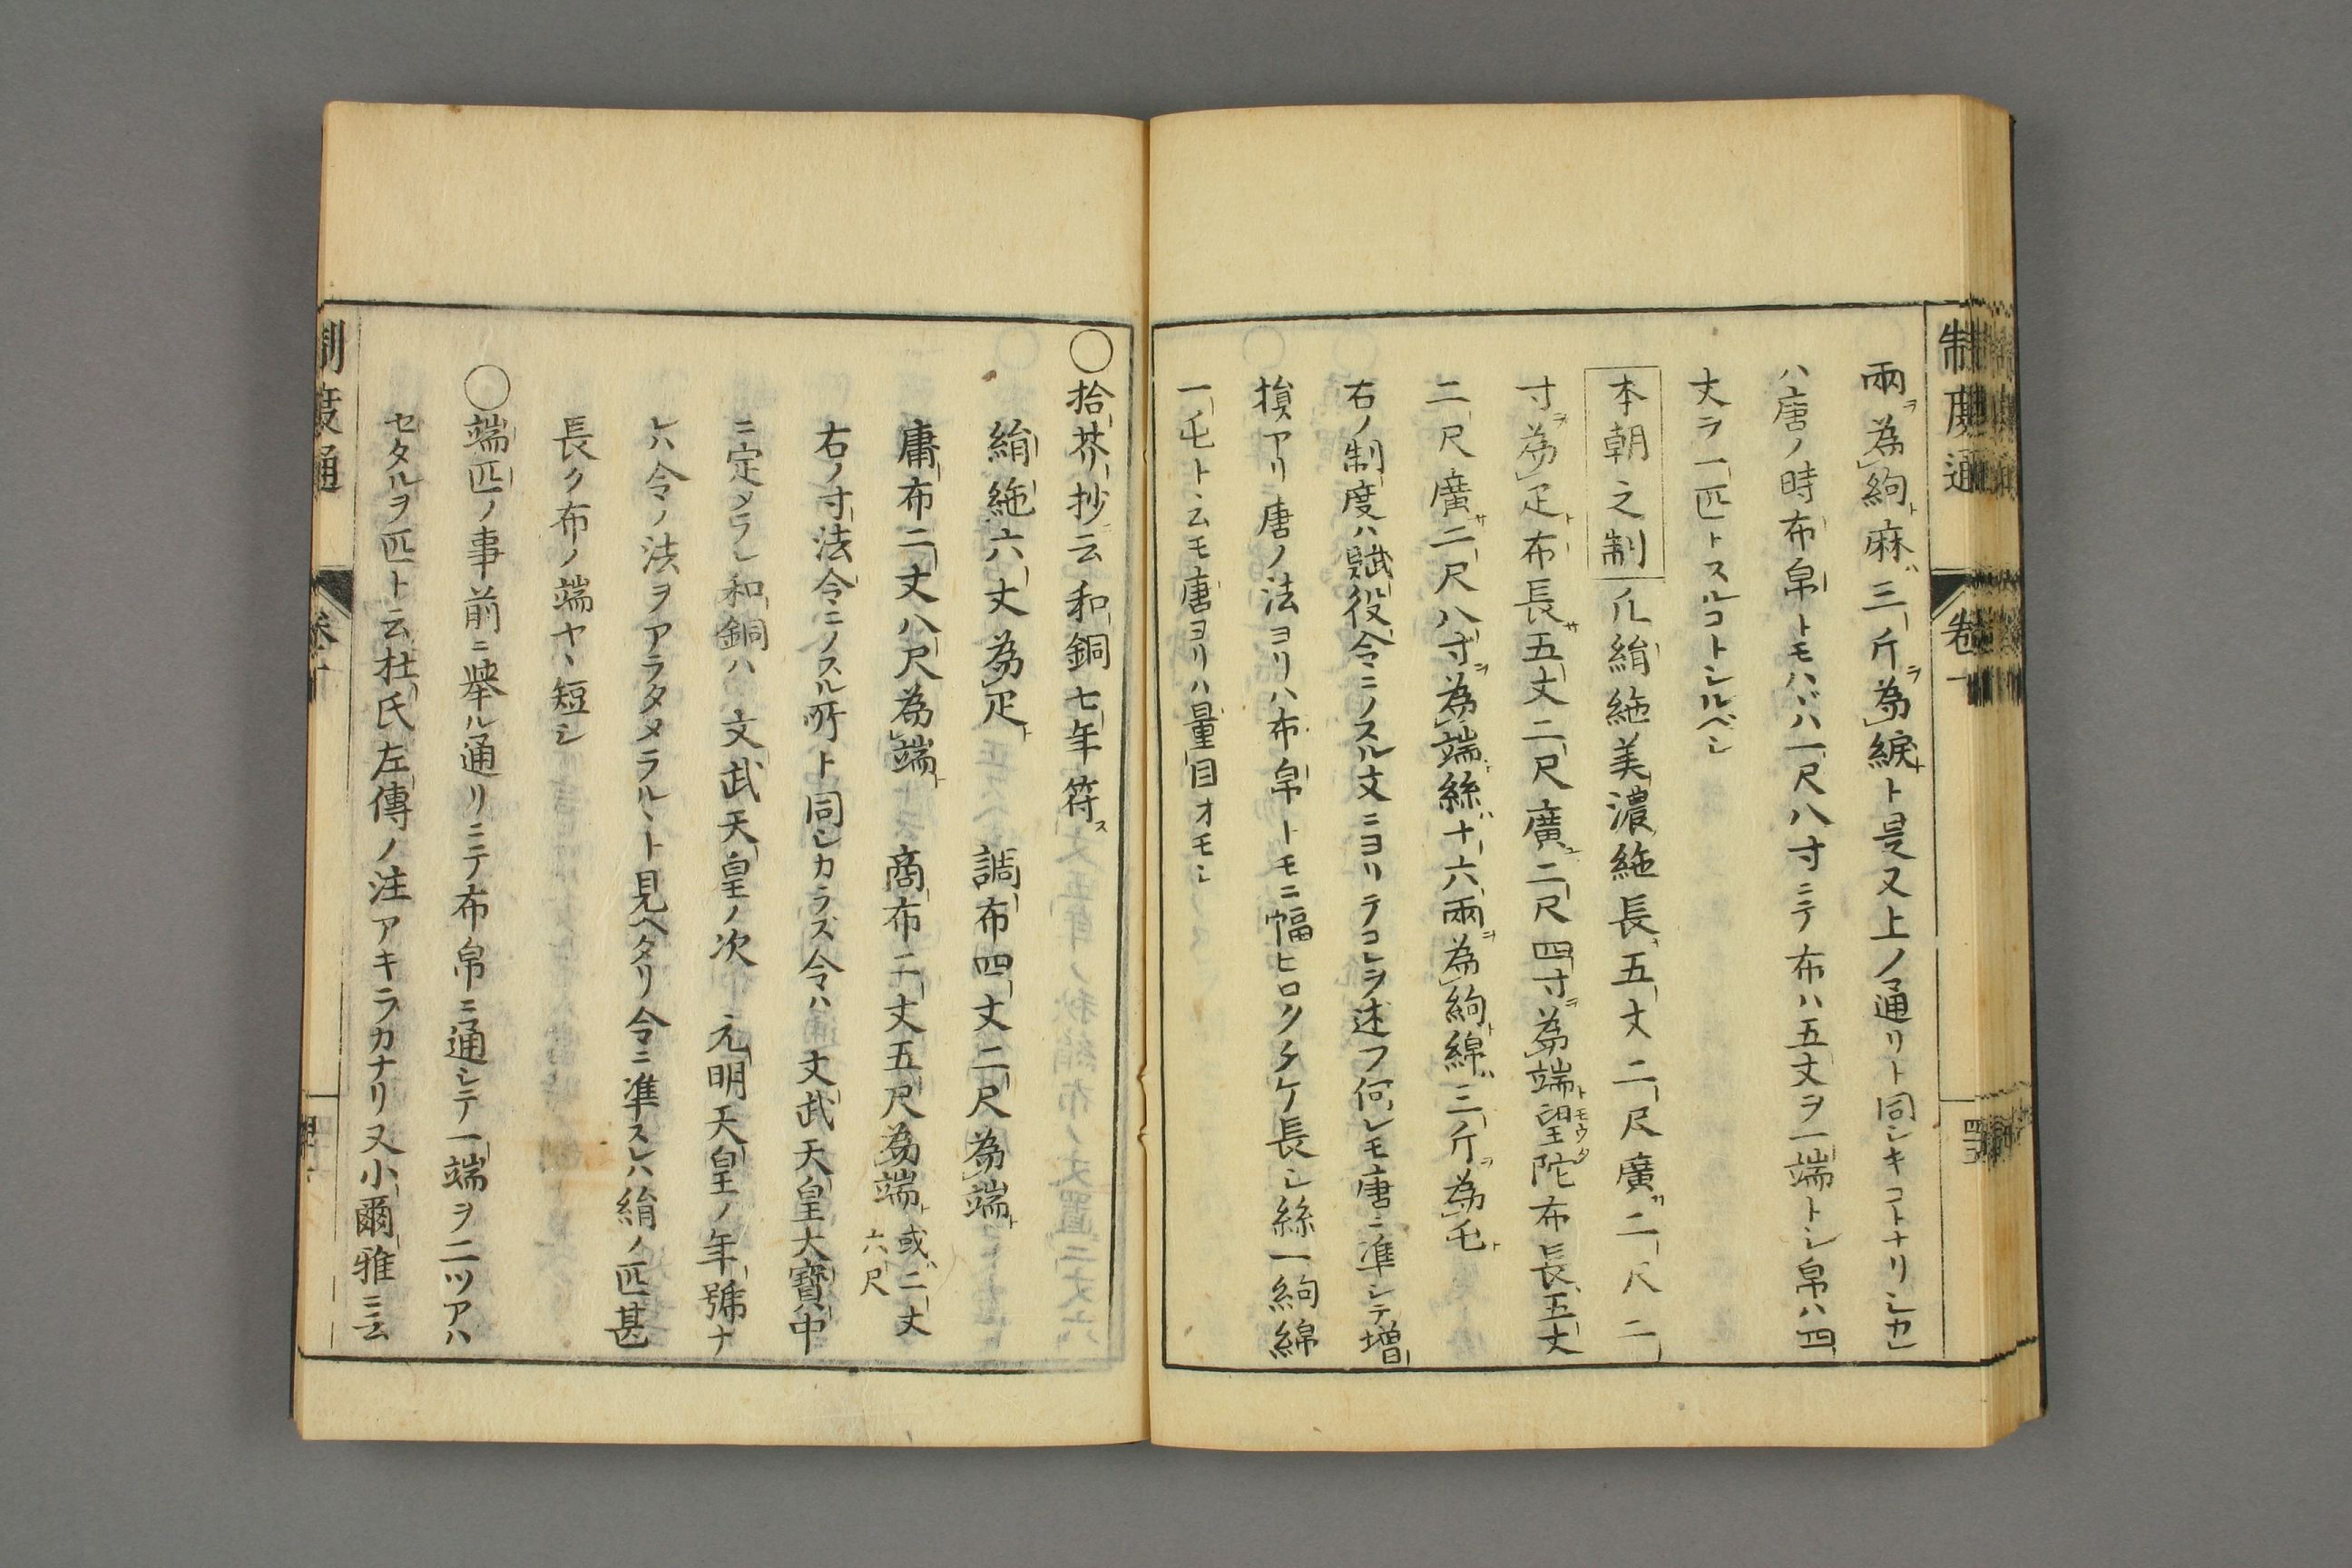 制度通 卷十
兩ヲ為絇ト麻ハ三斤ヲ為綟ト是又上ノ通リト同シキコトナリシカレ
ハ唐ノ時布帛トモハバハ一尺八寸ニテ布ハ五丈ヲ一端トシ帛ハ四
丈ヲ一匹トスルコトシルベシ
本朝之制 凡絹絁美濃絁長五丈二尺廣サ二尺二
寸ヲ為疋ト布長サ五丈二尺廣二尺四寸ヲ為端ト望陀モウタ布長五丈
二尺廣サ二尺八寸ヲ為端ト絲ハ十六兩ヲ為絇ト綿ハ三斤ヲ為屯ト
右ノ制度ハ賦役令ニノスル文ニヨリテコレヲ述フ何レモ唐ニ準シテ增
損アリ唐ノ法ヨリハ布帛トモニ幅ヒロクタケ長シ絲一絇綿
一屯ト云モ唐ヨリハ量目オモシ
○拾芥抄云和銅七年符ス
絹絁六丈為疋ト 調布四丈二尺為端ト
庸布二丈八尺為端ト 商布二丈五尺為端ト或ハ二丈六尺
右ノ寸法令ニノスル所ト同シカラズ令ハ 文武天皇大寶中
ニ定メラレ和銅ハ 文武天皇ノ次 元明天皇ノ年號ナ
レハ令ノ法ヲアラタメラルヽト見ヘタリ令ニ準スレハ絹ノ匹甚
長ク布ノ端ヤヽ短シ
○端匹ノ事前ニ舉ル通リニテ布帛ニ通シテ一端ヲ二ツアハ
セタルヲ匹ト云杜氏左傳ノ注アキラカナリ又小爾雅ニ云
制度通 卷十